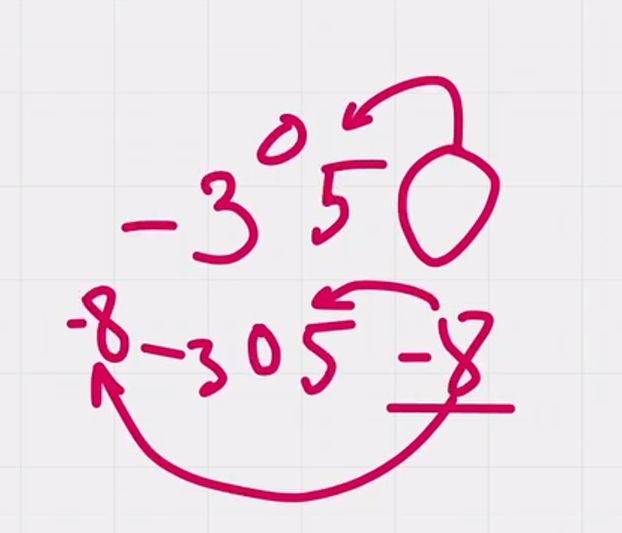 -3 0 5 0
-8 -3 0 5 -8